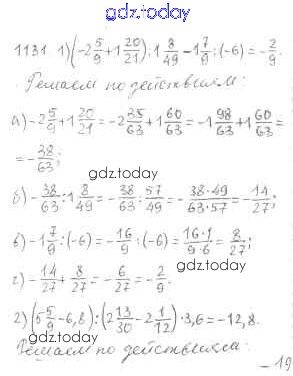 gdz.today
1131 1) (-2 5/9 + 1 20/21) : 1 8/49 - 1 7/9 : (-6) = -2/9.
Решаем по действиям:
gdz.today
а) -2 5/9 + 1 20/21 = -2 35/63 + 1 60/63 = -1 98/63 + 1 60/63 =
= -38/63;
gdz.today
б) -38/63 : 1 8/49 = -38/63 : 57/49 = -38·49/63·57 = -14/27;
gdz.today
в) -1 7/9 : (-6) = -16/9 : (-6) = 16·1/9·6 = 8/27;
г) -14/27 + 8/27 = -6/27 = -2/9.
gdz.today
2) (5 5/9 - 6,8) : (2 13/30 - 2 1/12) · 3,6 = -12,8.
Решаем по действиям:
gdz.today
-19